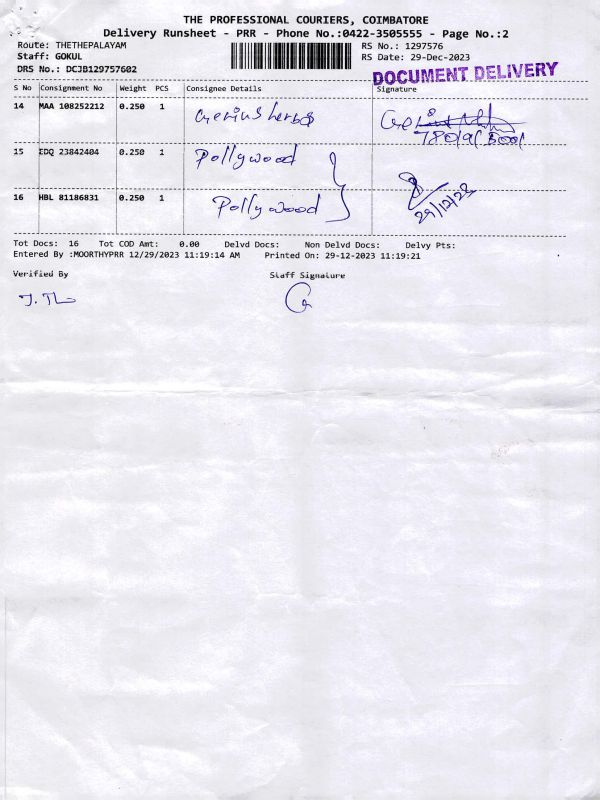 THE PROFESSIONAL COURIERS, COIMBATORE
Delivery Runsheet - PRR - Phone No.:0422-3505555 - Page No.:2
Route: THETHEPALAYAM RS No.: 1297576
Staff: GOKUL RS Date: 29-Dec-2023
DRS No.: DCJB129757602 DOCUMENT DELIVERY
S No Consignment No Weight PCS Consignee Details Signature
14 MAA 108252212 0.250 1
15 EDQ 23842404 0.250 1 Pollywood
16 HBL 81186831 0.250 1 Pollywood
29/12/23
Tot Docs: 16 Tot COD Amt: 0.00 Delvd Docs: Non Delvd Docs: Delvy Pts:
Entered By :MOORTHYPRR 12/29/2023 11:19:14 AM Printed On: 29-12-2023 11:19:21
Verified By Staff Signature